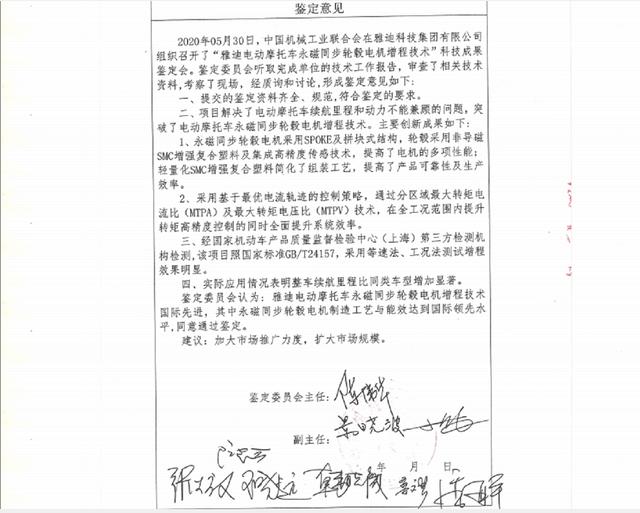 鉴定意见
2020年05月30日，中国机械工业联合会在雅迪科技集团有限公司
组织召开了“雅迪电动摩托车永磁同步轮毂电机增程技术”科技成果
鉴定会。鉴定委员会听取完成单位的技术工作报告，审查了相关技术
资料，考察了现场，经质询和讨论，形成鉴定意见如下：
一、提交的鉴定资料齐全、规范，符合鉴定的要求。
二、项目解决了电动摩托车续航里程和动力不能兼顾的问题，突
破了电动摩托车永磁同步轮毂电机增程技术。主要创新成果如下：
1、永磁同步轮毂电机采用SPOKE及拼块式结构，轮毂采用非导磁
SMC增强复合塑料及集成高精度传感技术，提高了电机的多项性能；
轻量化SMC增强复合塑料简化了组装工艺，提高了产品可靠性及生产
效率。
2、采用基于最优电流轨迹的控制策略，通过分区域最大转矩电
流比（MTPA）及最大转矩电压比（MTPV）技术，在全工况范围内提升
转矩高精度控制的同时全面提升系统效率。
三、经国家机动车产品质量监督检验中心（上海）第三方检测机
构检测，该项目照国家标准GB/T24157，采用等速法、工况法测试增程
效果明显。
四、实际应用情况表明整车续航里程比同类车型增加显著。
鉴定委员会认为：雅迪电动摩托车永磁同步轮毂电机增程技术
国际先进，其中永磁同步轮毂电机制造工艺与能效达到国际领先水
平，同意通过鉴定。
建议：加大市场推广力度，扩大市场规模。
鉴定委员会主任：
副主任：
年 月 日